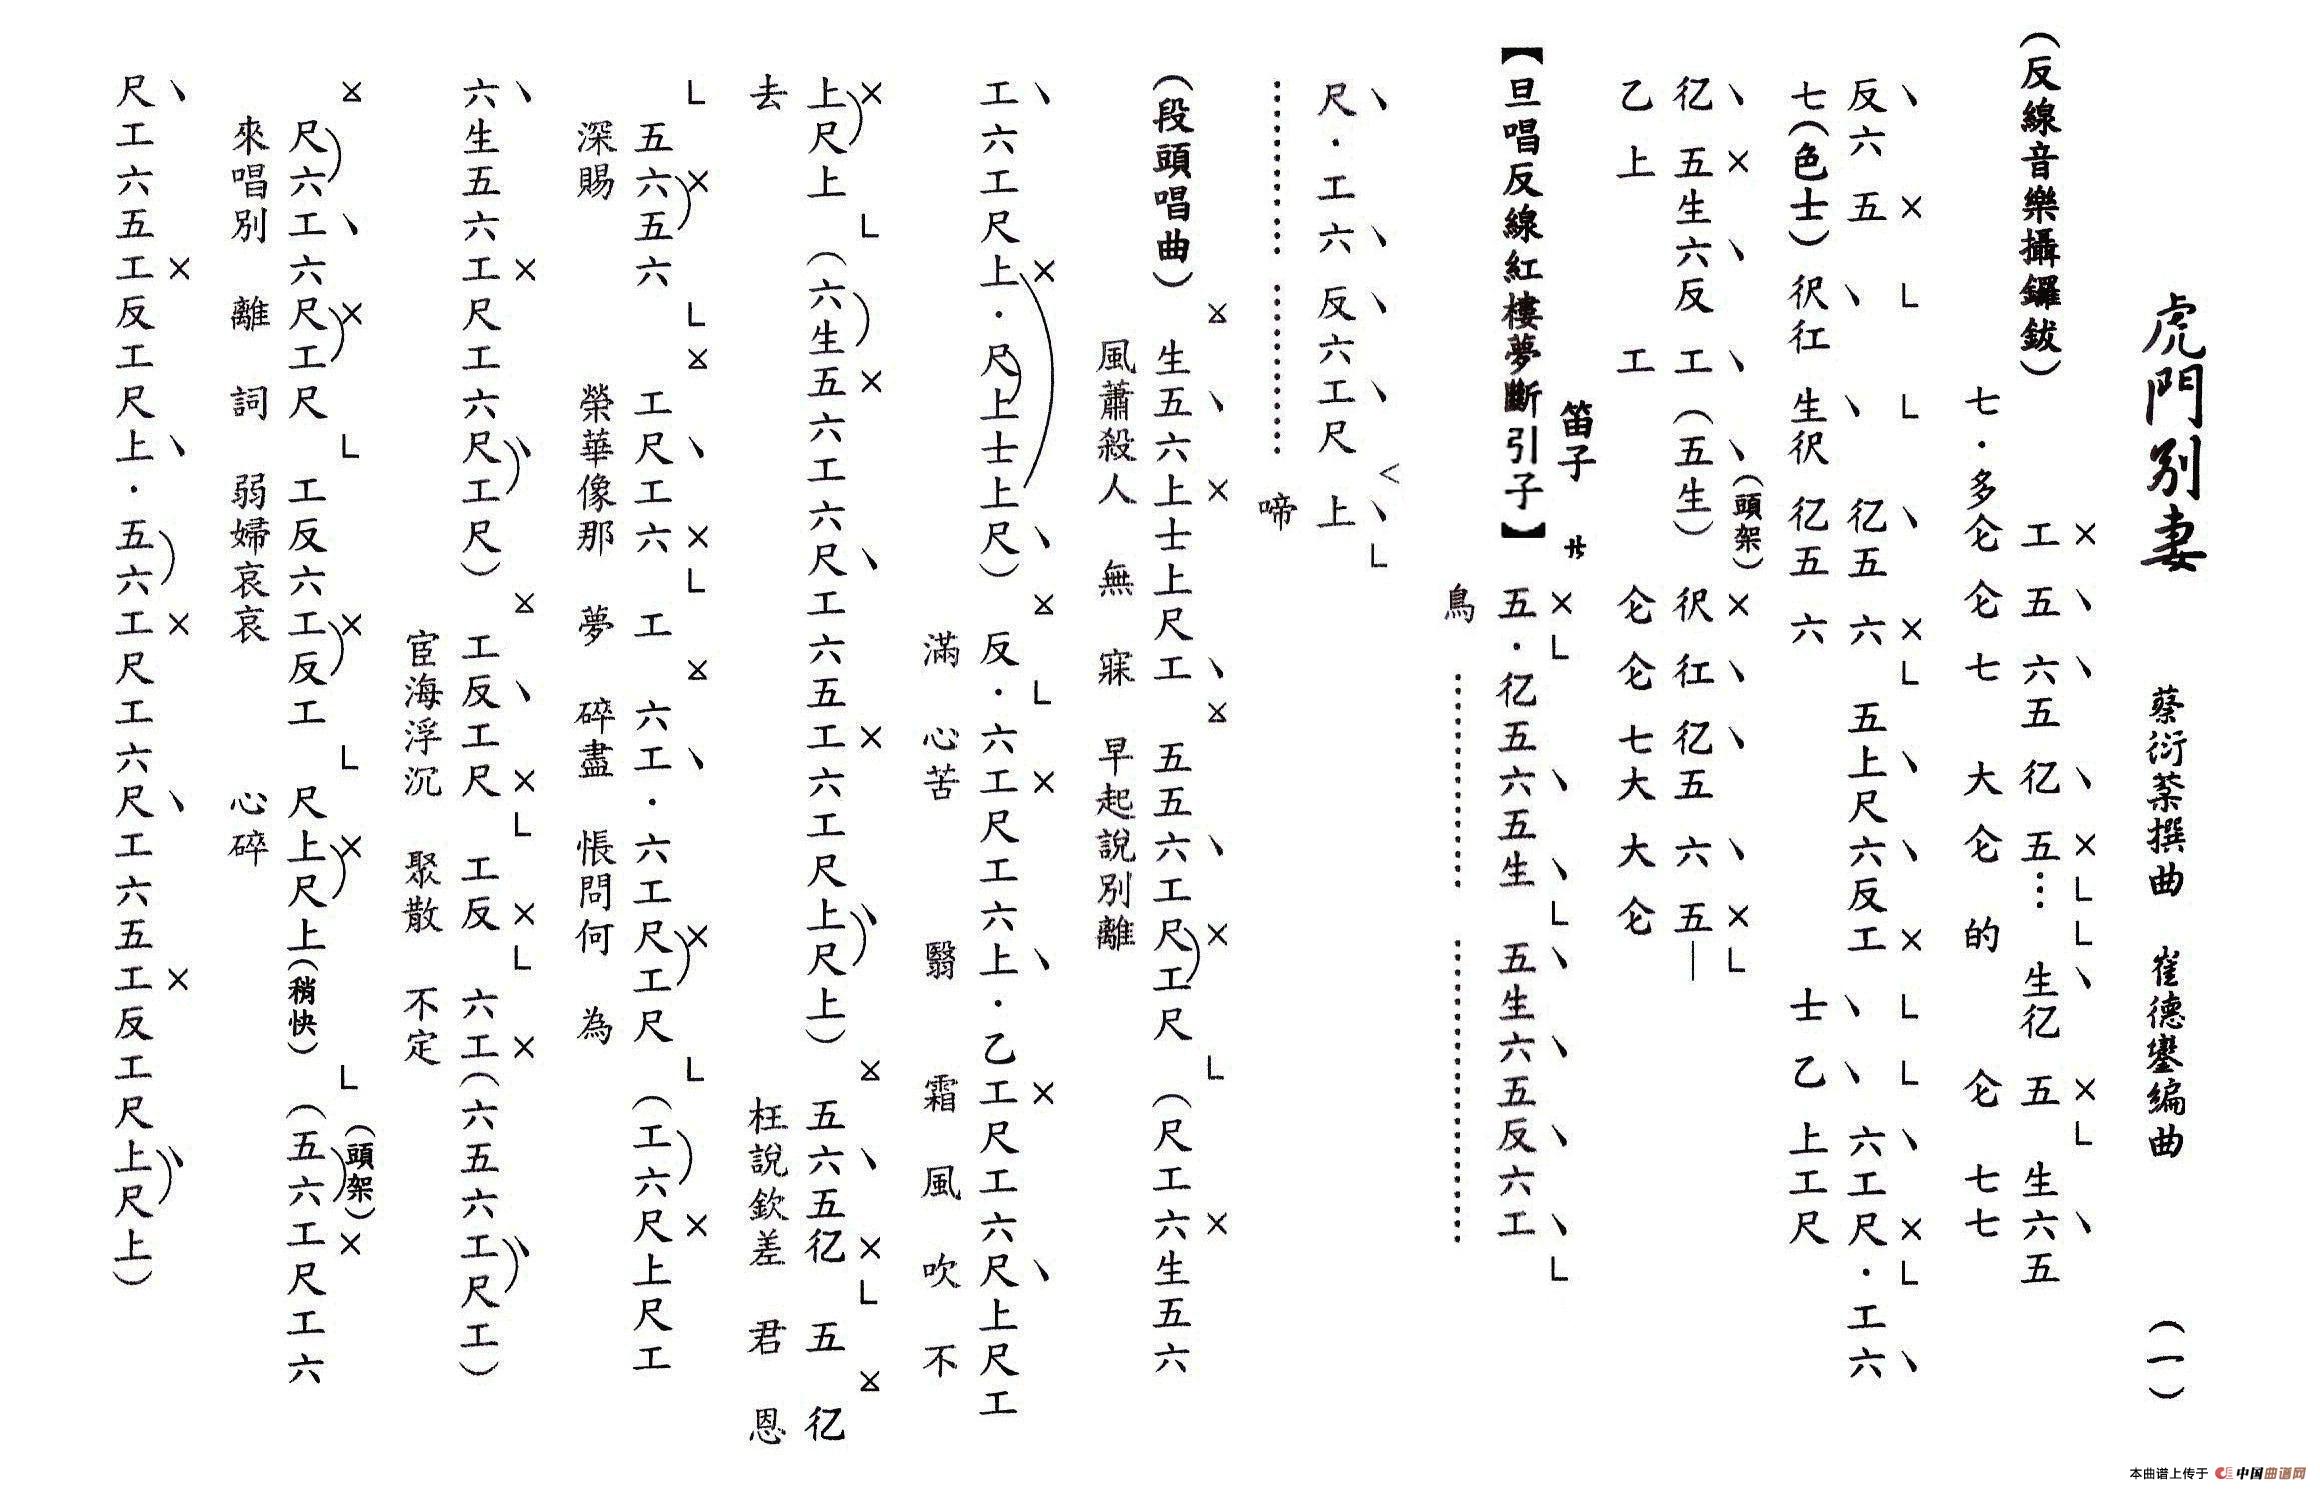 虎門別妻 蔡衍棻撰曲 崔德鑾編曲 (一)
(反線音樂攝鑼鈸) 工五六五亿五…生亿五生六五
七·多仑仑仑七大仑的仑七七
反六五 亿五六五上尺六反工 六工尺·工六
七(色士)伬仜生伬亿五六 士乙上工尺
亿五生六反工(五生)(頭架)伬仜亿五六五—
乙上工 仑仑七大大仑
【旦唱反線紅樓夢斷引子】笛子 サ 五·亿五六五生 五生六五反六工
鳥
尺·工六 反六工尺 上
啼
(段頭唱曲) 生五六上士上尺工 五五六工尺工尺(尺工六生五六
風蕭殺人 無 寐 早起說別離
工六工尺上·尺上士上尺)反·六工尺工六上·乙工尺工六尺上尺工
滿 心苦 翳 霜 風 吹 不
上尺上(六生五六工六尺工六五工六工尺上尺上)五六五亿 五 亿
去 枉說欽差 君 恩
五六五六 工尺工六 工 六工·六工尺工尺(工六尺上尺工
深賜 榮華像那 夢 碎盡 悵問何 為
六生五六工尺工六尺工尺)工反工尺 工反 六工(六五六工尺工)
宦海浮沉 聚散 不定
尺六工六尺工尺 工反六工反工 尺上尺上(稍快)(頭架)(五六工尺工六
來唱別 離 詞 弱婦哀哀 心碎
尺工六五工反工尺上·五六工尺工六尺工六五工反工尺上尺上)
本曲谱上传于 中国曲谱网